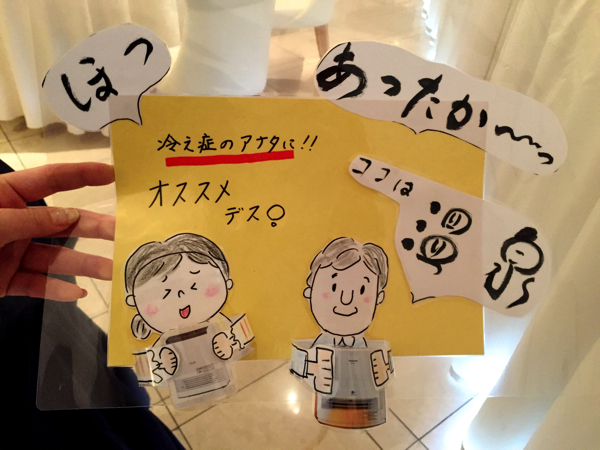 ほっ
あったか〜〜っ
冷え症のアナタに!!
オススメ
デス!
ココは
温泉